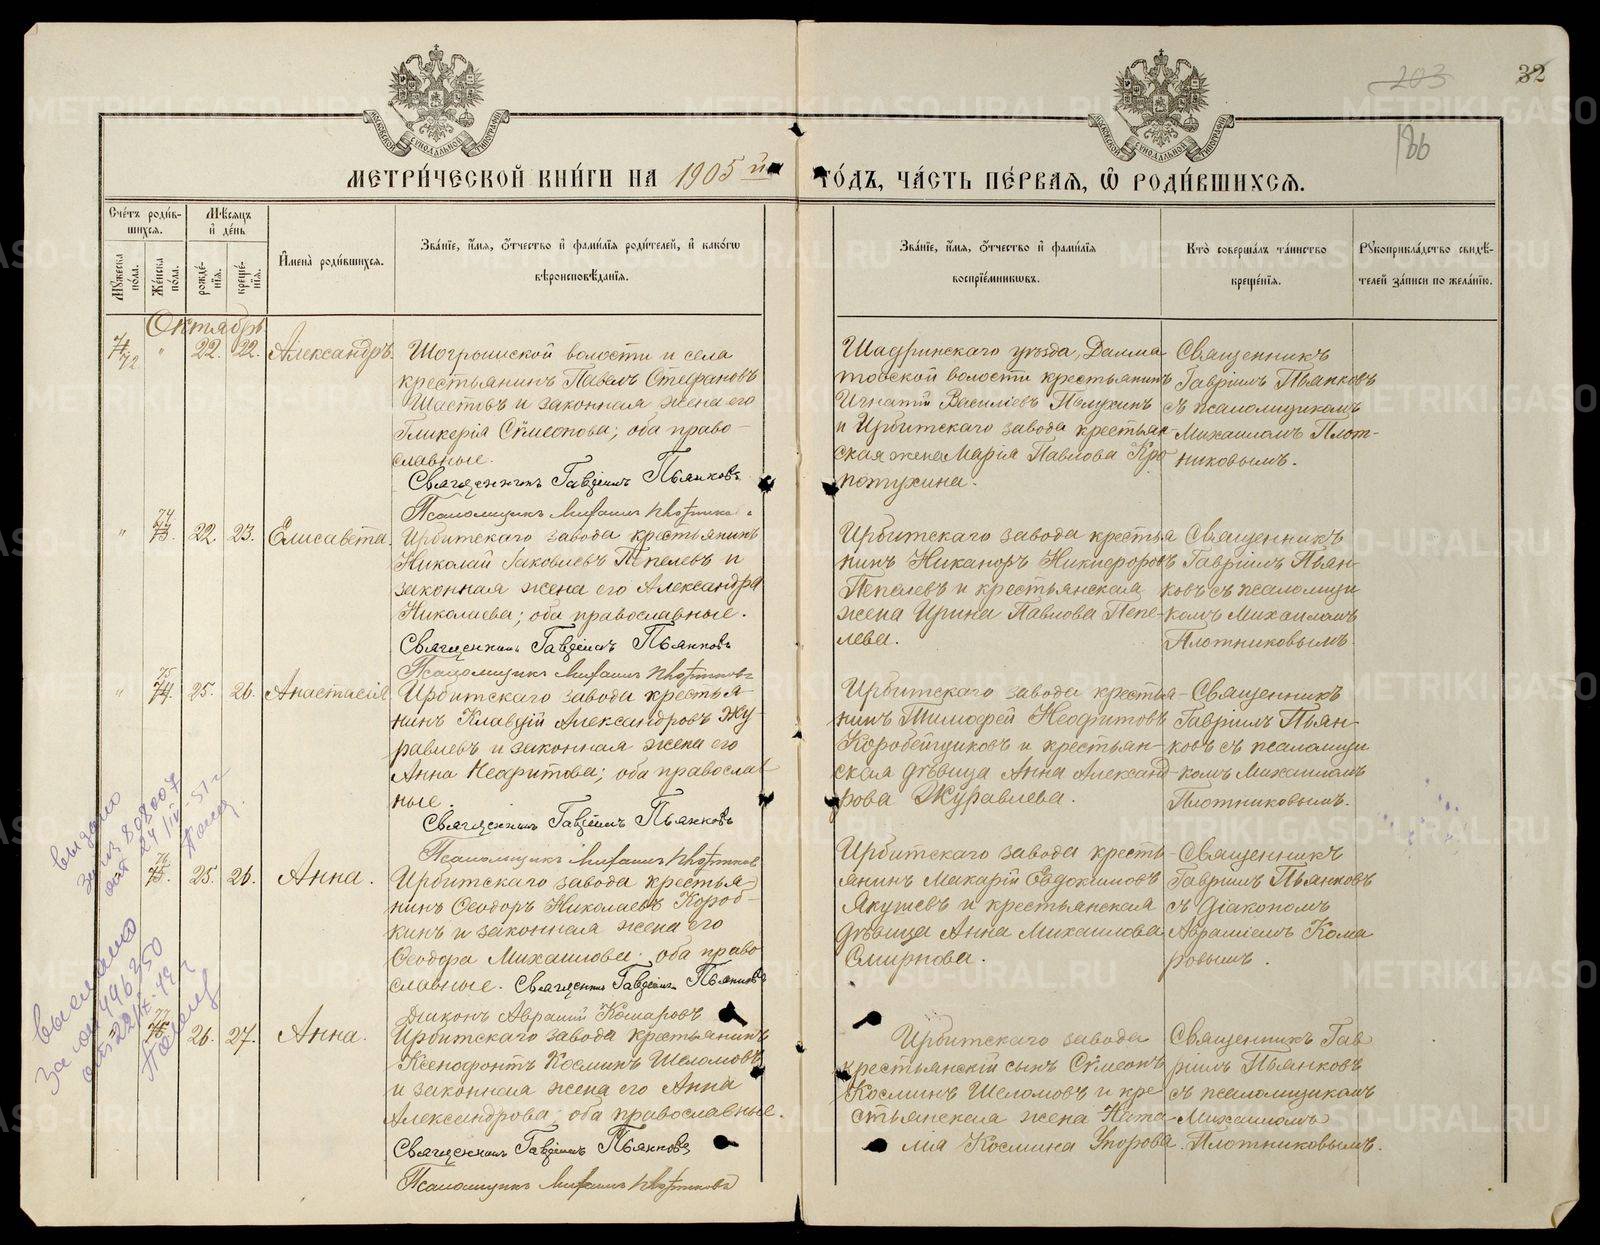 МЕТРИ́ЧЕСКОЙ КНИ́ГИ НА 1905 й
ГО́ДЪ, ЧА́СТЬ ПЕ́РВАѦ, Ѡ РОДИ́ВШИХСѦ.
203
32
186
Сче́тъ роди́в-
шихсѧ.
Мѣ́сѧцъ
и де́нь
Мꙋ́жеска по́ла.
Же́нска по́ла.
рожде́-
нїѧ.
креще́-
нїѧ.
И҆мена̀ роди́вшихсѧ.
Зва́нїе, и҆́мѧ, ѻ҆́тчество и҆ фами́лїѧ роди́телей, и҆ како́гѡ
вѣроисповѣ́данїѧ.
Зва́нїе, и҆́мѧ, ѻ҆́тчество и҆ фами́лїѧ
воспрїе́мникѡвъ.
Кто̀ соверша́лъ та́инство
креще́нїѧ.
Рꙋкоприкла́дство свидѣ́-
телей за́писи по жела́нїю.
Октябрь
72 " 22. 22. Александръ.
Шогришской волости и села
крестьянинъ Павелъ Стефановъ
Шастовъ и законная жена его
Гликерія Сѵмеонова; оба право-
славные.
Священникъ Гавріилъ Пьянковъ
Псаломщикъ Михаилъ Плотников
Шадринскаго уѣзда, Далма
товской волости крестьянинъ
Игнатій Василіевъ Пѣтухинъ
и Ирбитскаго завода крестьян-
ская жена Марія Павлова Кро
потухина.
Священникъ
Гавріилъ Пьянковъ
съ псаломщикомъ
Михаиломъ Плот-
никовымъ.
" 74 73. 22. 23. Елисавета.
Ирбитскаго завода крестьянинъ
Николай Іаковлевъ Пепелевъ и
законная жена его Александра
Николаева; оба православные.
Священникъ Гавріилъ Пьянковъ
Псаломщикъ Михаилъ Плотниковъ
Ирбитскаго завода крестья
нинъ Никаноръ Никифоровъ
Пепелевъ и крестьянская
жена Ирина Павлова Пепе-
лева.
Священникъ
Гавріилъ Пьян-
ковъ съ псаломщи
комъ Михаиломъ
Плотниковымъ.
" 75 74. 25. 26. Анастасія
Ирбитскаго завода крестья-
нинъ Клавдій Александровъ Жу-
равлевъ и законная жена его
Анна Неофитова; оба православ
ные.
Священникъ Гавріилъ Пьянковъ
Псаломщикъ Михаилъ Плотников
Ирбитскаго завода крестья-
нинъ Тимофей Неофитовъ
Коробейщиковъ и крестьян-
ская дѣвица Анна Александ-
рова Журавлева.
Священникъ
Гавріилъ Пьян-
ковъ съ псаломщи
комъ Михаиломъ
Плотниковымъ.
76 75. 25. 26. Анна.
Ирбитскаго завода крестья-
нинъ Ѳеодоръ Николаевъ Короб-
кинъ и законная жена его
Ѳеодора Михаилова; оба право
славные. Священникъ Гавріилъ Пьянковъ
Діаконъ Аврамій Комаровъ
Ирбитскаго завода кресть-
янинъ Макарій Евдокимовъ
Якушевъ и крестьянская
дѣвица Анна Михаилова
Смирнова.
Священникъ
Гавріилъ Пьянковъ
съ Діакономъ
Авраміемъ Кома
ровымъ.
77 76. 26. 27. Анна.
Ирбитскаго завода крестьянинъ
Ксенофонтъ Косминъ Шеломовъ
и законная жена его Анна
Александрова; оба православные.
Священникъ Гавріилъ Пьянковъ
Псаломщикъ Михаилъ Плотниковъ
Ирбитскаго завода
крестьянскій сынъ Сѵмеонъ
Косминъ Шеломовъ и кре
стьянская жена Ната-
лия Космина Упорова.
Священникъ Гав
ріилъ Пьянковъ
съ псаломщикомъ
Михаиломъ
Плотниковымъ.
выдано
808007
от 24/III-51 г
выслано
за № 496350
METRIKI.GASO-URAL.RU